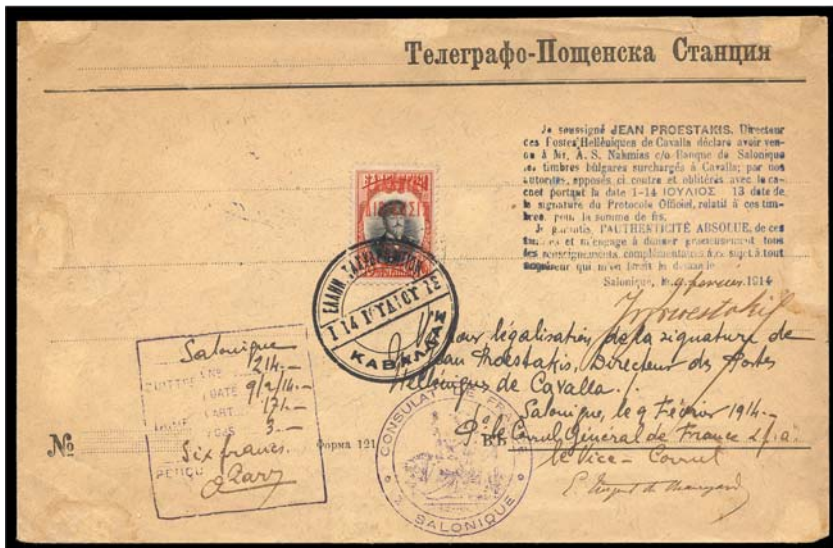 Телеграфо-Пощенска Станция
Je soussigné JEAN PROESTAKIS, Directeur
des Postes Helléniques de Cavalla déclare avoir ven-
du à Mr. A. S. Nahmias c/o Banque de Salonique
les timbres bulgares surchargés à Cavalla; par nos
autorités, apposés ci contre et oblitérés avec le ca-
chet portant la date 1-14 ΙΟΥΛΙΟΣ 13 date de
la signature du Protocole Officiel, relatif à ces tim-
bres, pour la somme de frs.
Je garantis, l'AUTHENTICITÉ ABSOLUE, de ces
timbres et m'engage à donner gracieusement tous
les renseignements complémentaires à ce sujet à tout
acquéreur qui m'en ferait la demande
Salonique, le 9 février 1914
ΕΛΛΗΝ.
1-14 ΙΟΥΛΙΟΥ 13
ΚΑΒΑΛΛΑΣ
pour légalisation de la signature de
Jean Proestakis, Directeur des Postes
Helléniques de Cavalla.
Salonique, le 9 Février 1914.-
P. le Consul Général de France
le Vice-Consul
Salonique
214.-
DATE 9/2/14.-
171.-
3.-
Six francs.
№
Форма 121
Въ
CONSULAT DE FRANCE
À SALONIQUE